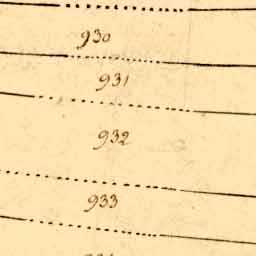 930
931
932
933